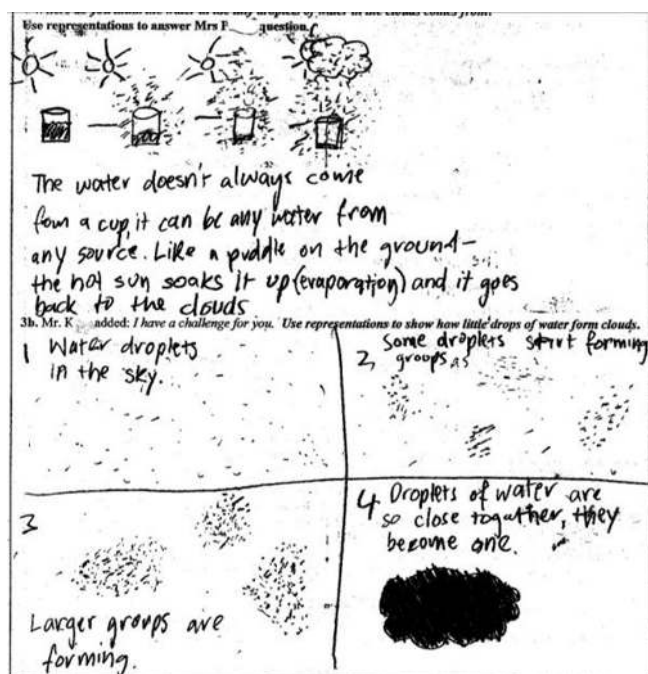 Use representations to answer Mrs question.
The water doesn't always come
from a cup, it can be any water from
any source. Like a puddle on the ground-
the hot sun soaks it up (evaporation) and it goes
back to the clouds
3b. Mr. K added: I have a challenge for you. Use representations to show how little drops of water form clouds.
1 Water droplets
in the sky.
2, Some droplets start forming
groups
3
Larger groups are
forming.
4 Droplets of water are
so close togather, they
become one.